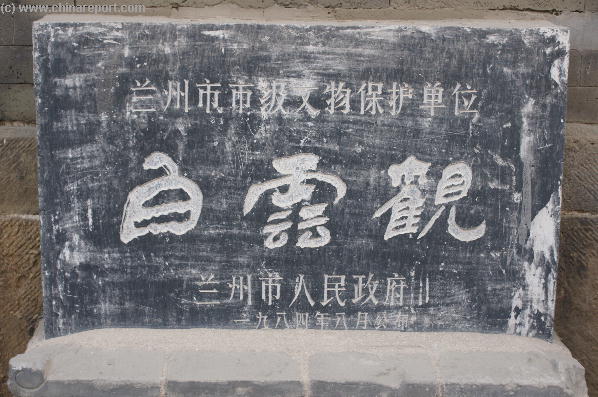 (c) www.chinareport.com
兰州市市级文物保护单位
白雲觀
兰州市人民政府
一九八四年八月公布